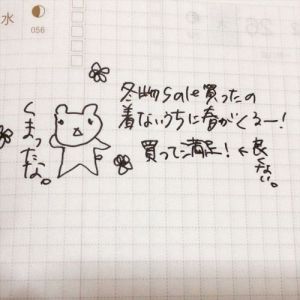 水
056
冬物sale買ったの
着ないうちに春がくるー!
買って満足!←良くない。
くまったな。